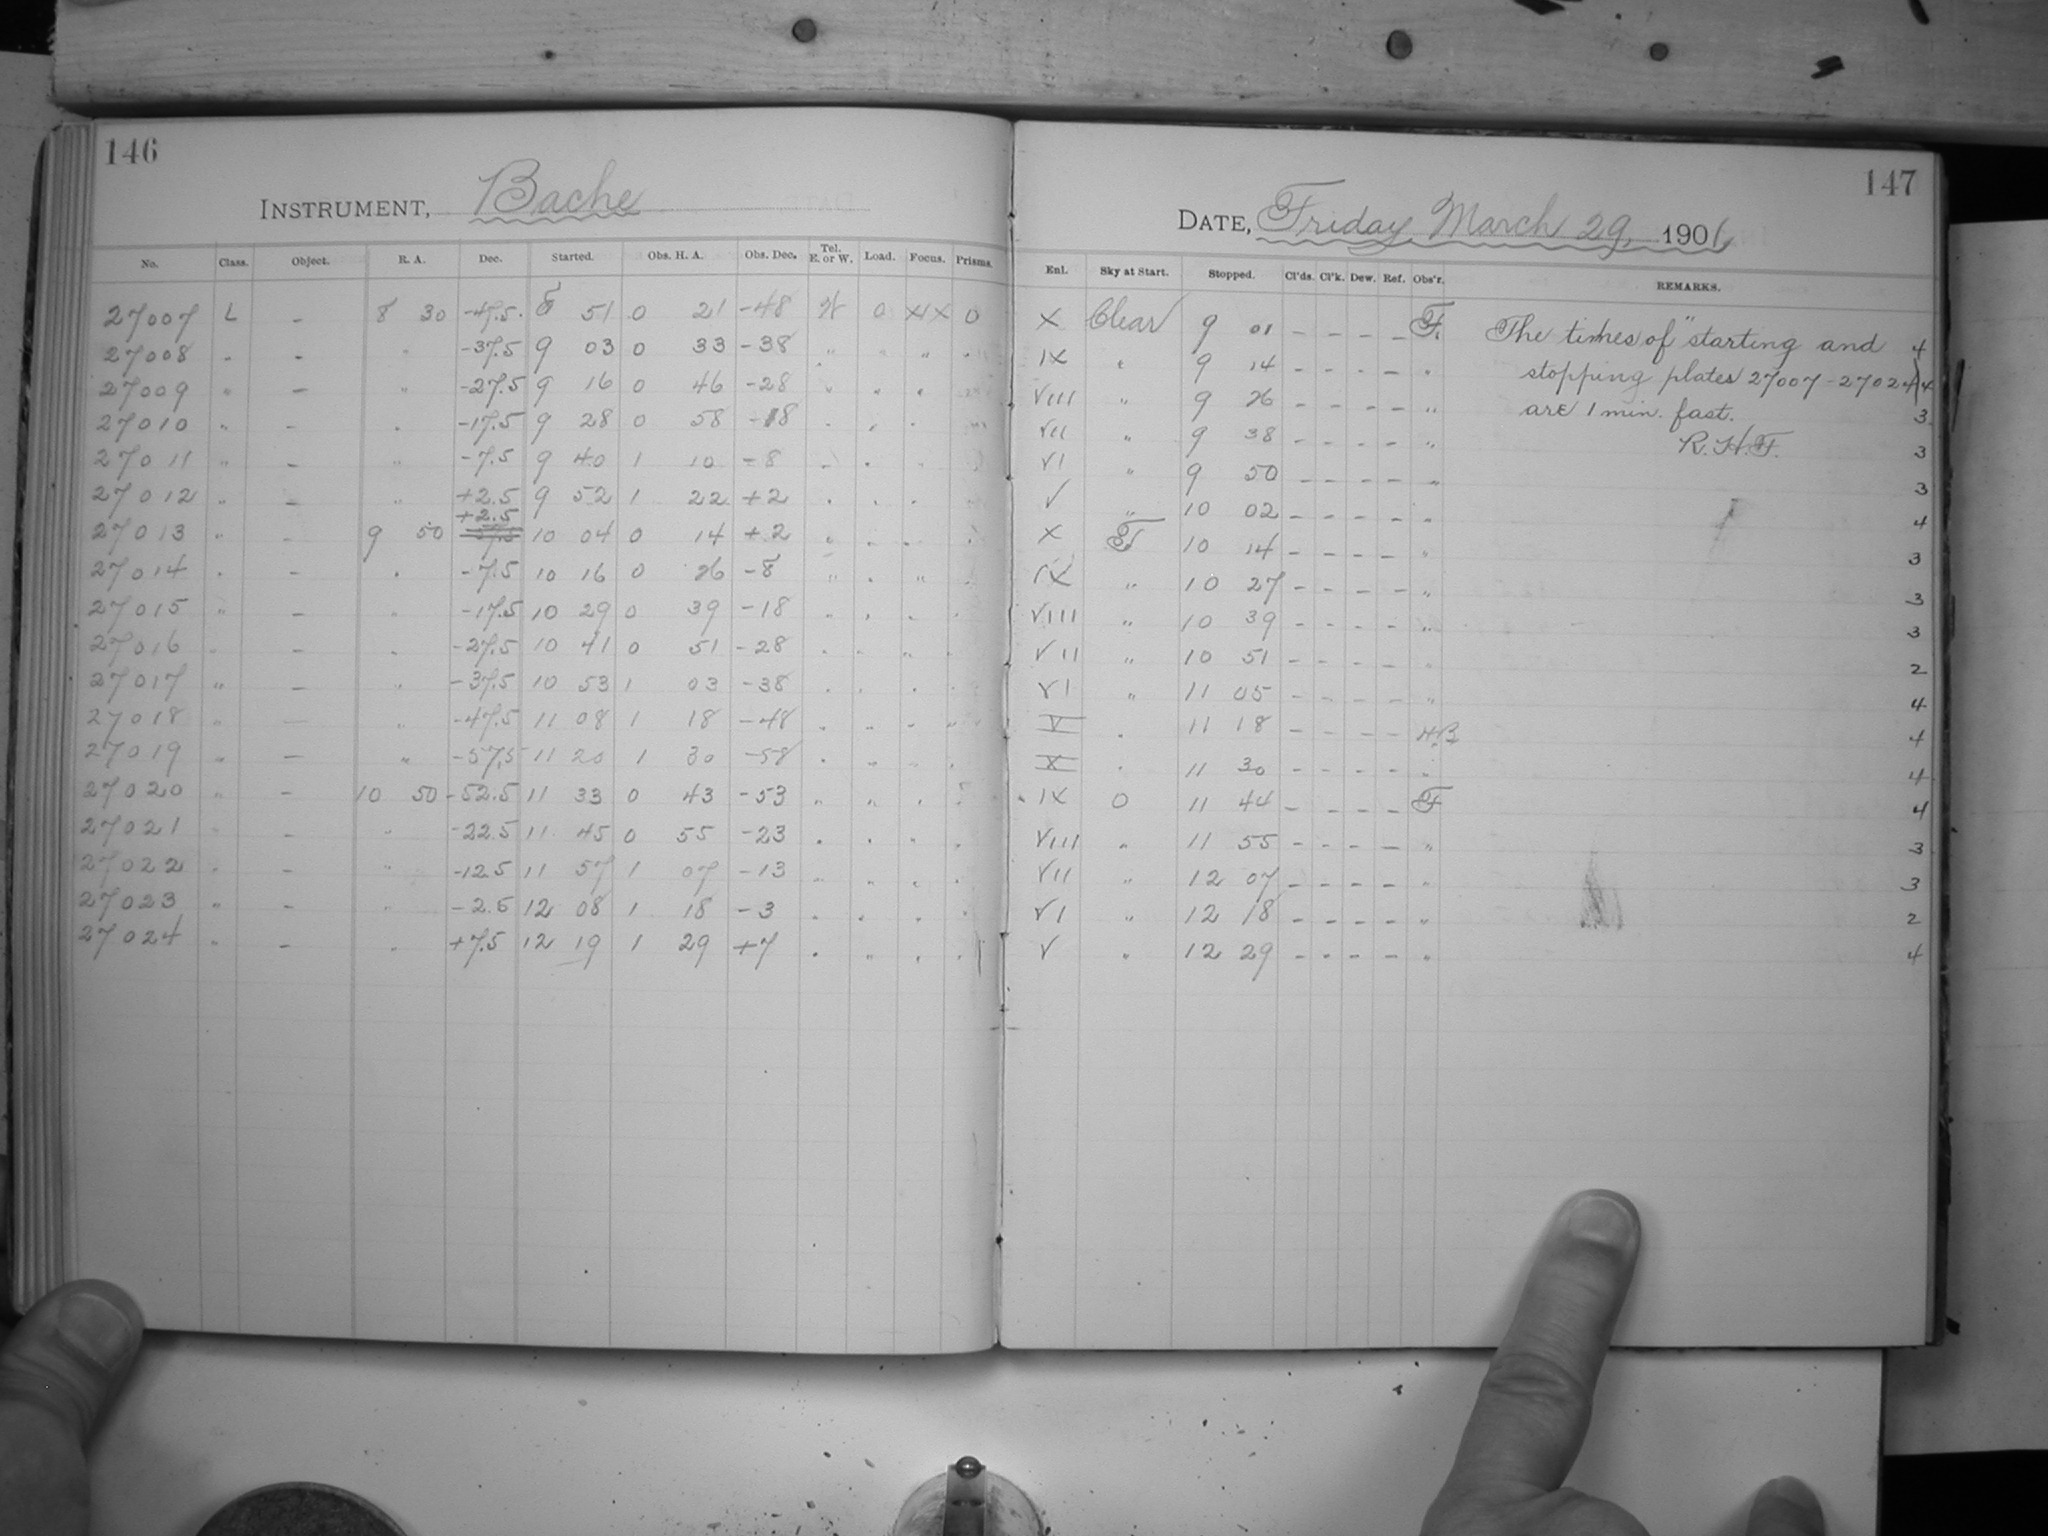 146
INSTRUMENT, Bache
No. Class. Object. R. A. Dec. Started. Obs. H. A. Obs. Dec. Tel. E. or W. Load. Focus. Prisms.
27007 L - 8 30 -47.5 8 51 0 21 -48 W 0 XIX 0
27008 " - " -37.5 9 03 0 33 -38 " " " "
27009 " - " -27.5 9 16 0 46 -28 " " " "
27010 " - " -17.5 9 28 0 58 -18 " " "
27011 " - " -7.5 9 40 1 10 -8 " "
27012 " - " +2.5 9 52 1 22 +2 " " "
+2.5
27013 " - 9 50 10 04 0 14 +2 " " " "
27014 " - " -7.5 10 16 0 26 -8 " " " "
27015 " - " -17.5 10 29 0 39 -18 " " " "
27016 " - " -27.5 10 41 0 51 -28 " " " "
27017 " - " -37.5 10 53 1 03 -38 " " " "
27018 " - " -47.5 11 08 1 18 -48 " " " "
27019 " - " -57.5 11 20 1 30 -58 " " " "
27020 " - 10 50 -52.5 11 33 0 43 -53 " " " "
27021 " - " -22.5 11 45 0 55 -23 " " " "
27022 " - " -12.5 11 57 1 07 -13 " " " "
27023 " - " -2.5 12 08 1 18 -3 " " " "
27024 " - " +7.5 12 19 1 29 +7 " " " "
147
DATE, Friday, March 29, 1901
Enl. Sky at Start. Stopped. Cl'ds. Cl'k. Dew. Ref. Obs'r. REMARKS.
X Clear 9 01 - - - - F. The times of starting and 4
IX " 9 14 - - - - " stopping plates 27007-27024 4
VIII " 9 26 - - - - " are 1 min. fast. 3
VII " 9 38 - - - - " R. H. F. 3
VI " 9 50 - - - - " 3
V " 10 02 - - - - " 4
X F 10 14 - - - - " 3
IX " 10 27 - - - - " 3
VIII " 10 39 - - - - " 3
VII " 10 51 - - - - " 2
VI " 11 05 - - - - " 4
V " 11 18 - - - - 4
X " 11 30 - - - - " 4
IX 0 11 44 - - - - F 4
VIII " 11 55 - - - - " 3
VII " 12 07 - - - - " 3
VI " 12 18 - - - - " 2
V " 12 29 - - - - " 4